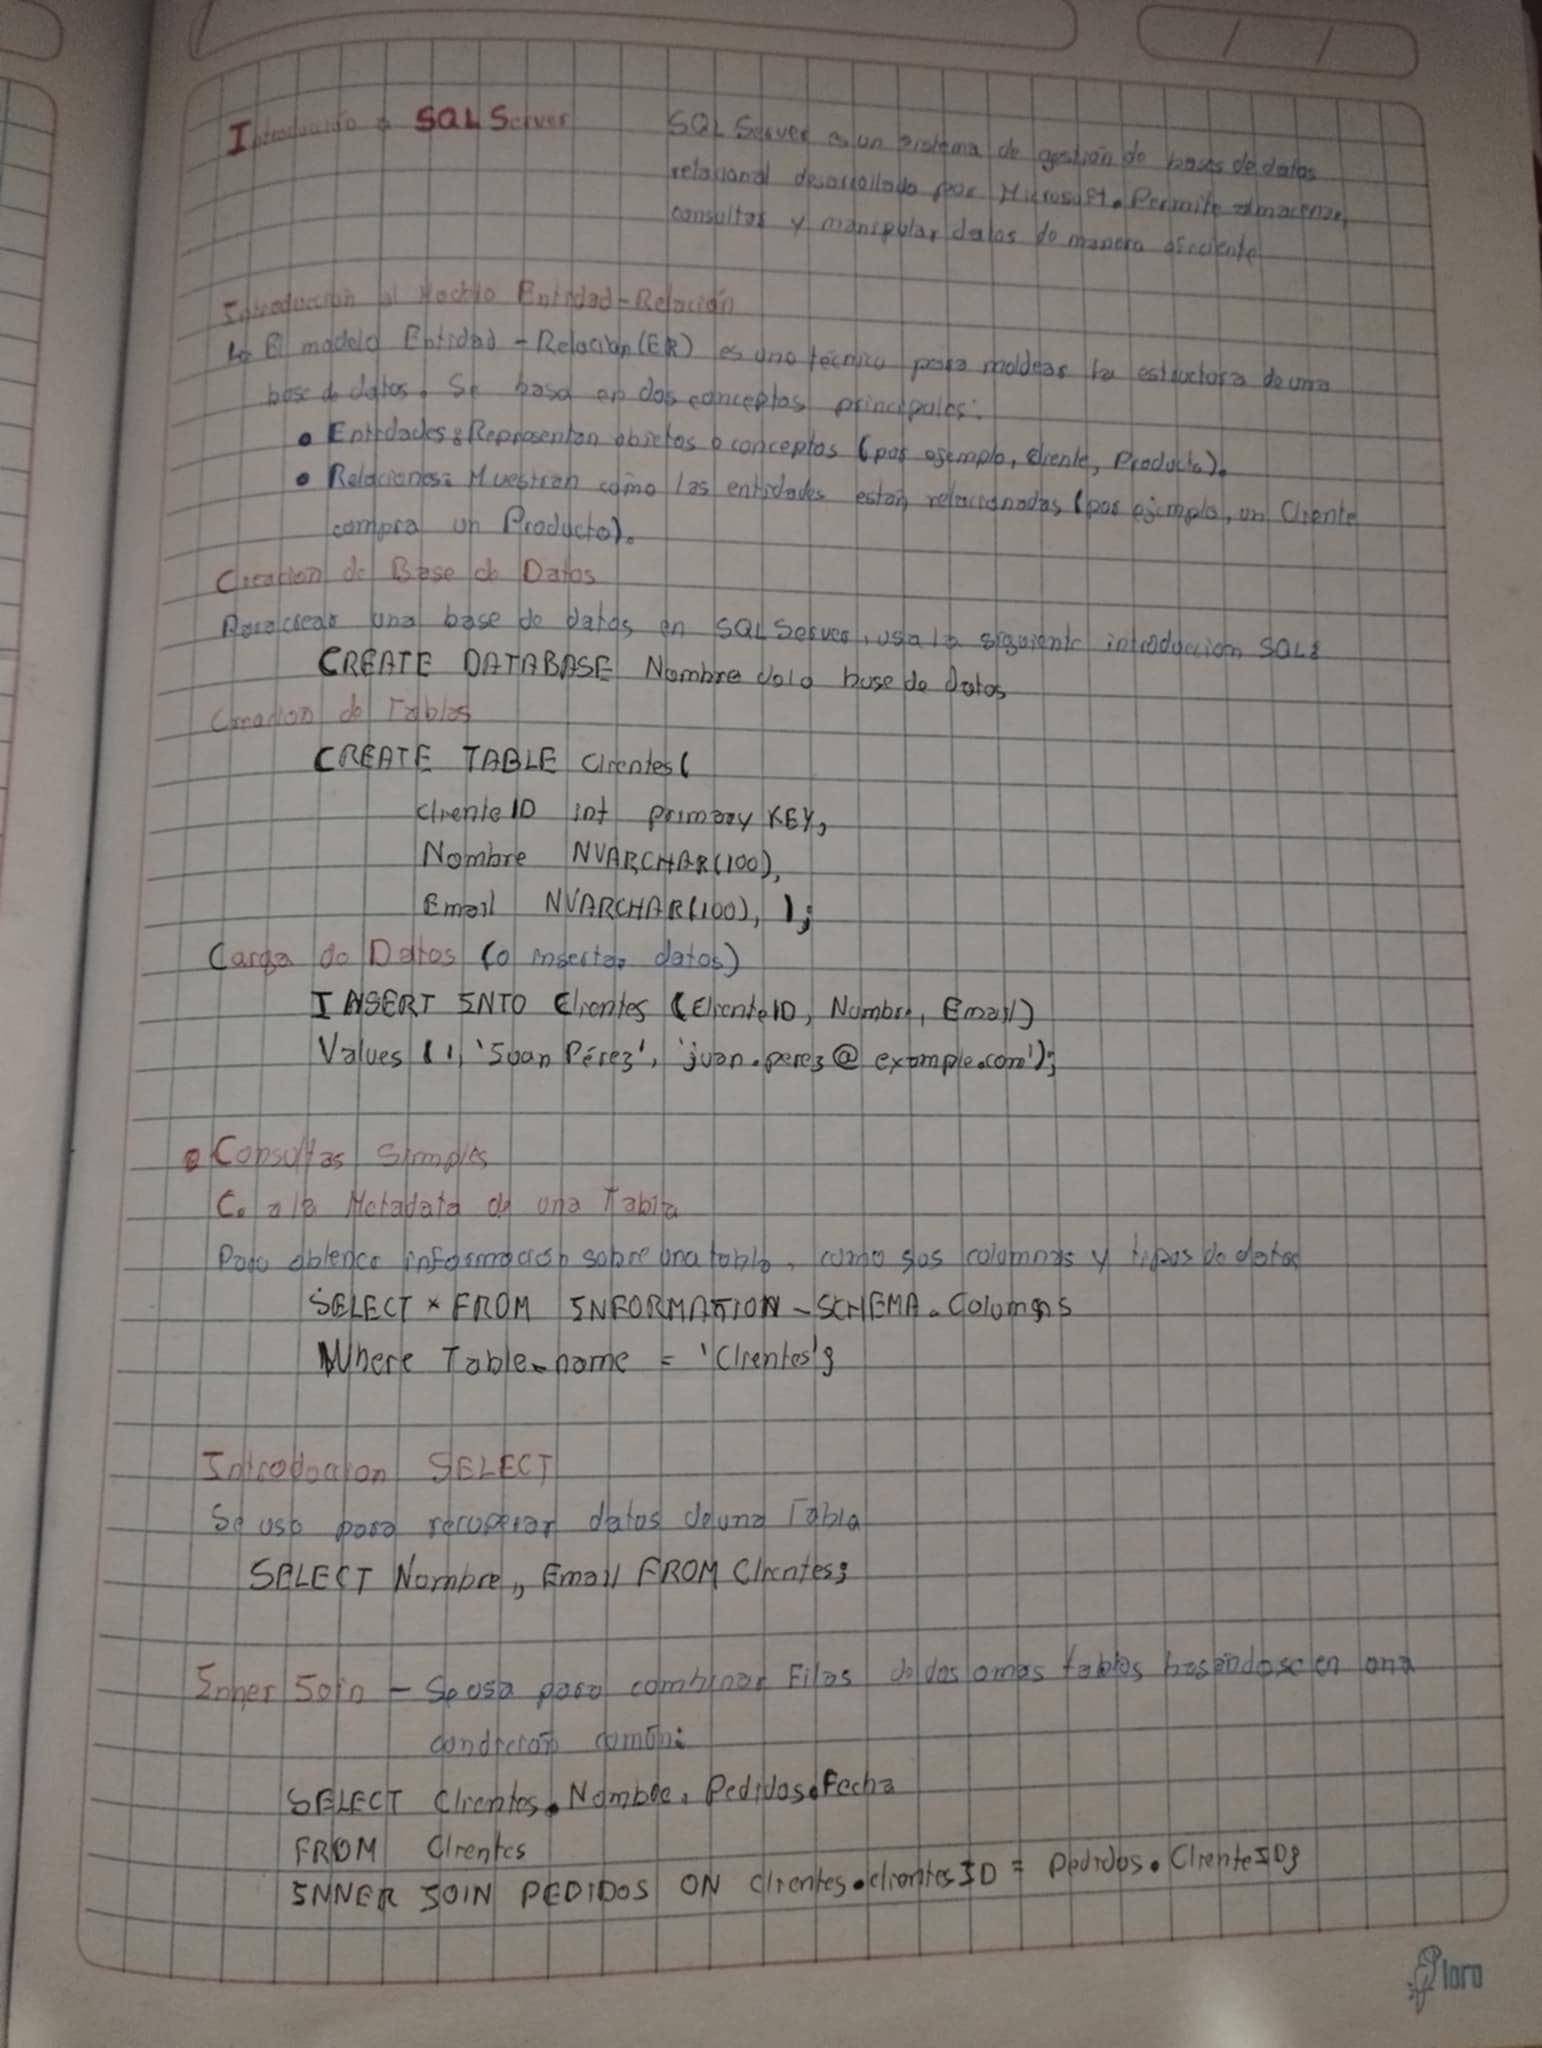 Introducción a SQL Server
SQL Server es un sistema de gestión de bases de datos
relacional desarrollado por Microsoft. Permite almacenar,
consultar y manipular datos de manera eficiente
Introducción al Modelo Entidad-Relación
↳ El modelo Entidad - Relación (ER) es una técnica para moldear la estructura de una
base de datos. Se basa en dos conceptos principales:
• Entidades: Representan objetos o conceptos (por ejemplo, cliente, Producto).
• Relaciones: Muestran cómo las entidades están relacionadas (por ejemplo, un Cliente
compra un Producto).
Creacion de Base de Datos
Para crear una base de datos en SQL Server, usa la siguiente introduccion SQL:
CREATE DATABASE Nombre de la base de datos
Creacion de Tablas
CREATE TABLE Clientes(
Cliente ID int primary KEY,
Nombre NVARCHAR(100),
Email NVARCHAR(100), );
Carga de Datos (o insertar datos)
INSERT INTO Clientes (Cliente ID, Nombre, Email)
Values (1, 'Juan Pérez', 'juan.perez@example.com');
• Consultas Simples
C. a la Metadata de una Tabla
Para obtener información sobre una tabla, como sus columnas y tipos de datos
SELECT * FROM INFORMATION_SCHEMA.Columns
Where Table_name = 'Clientes';
Introduccion SELECT
Se usa para recuperar datos de una Tabla
SELECT Nombre, Email FROM Clientes;
Inner Join - Se usa para combinar Filas de dos o mas tablas basándose en una
condición común:
SELECT Clientes.Nombre, Pedidos.Fecha
FROM Clientes
INNER JOIN PEDIDOS ON Clientes.clientes ID = Pedidos.Cliente ID;
loro